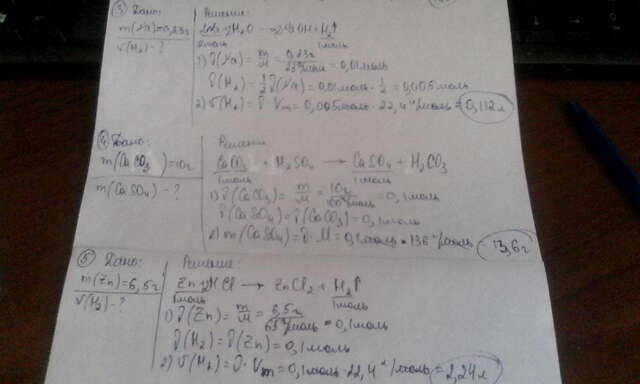 ③ Дано:
m(Na)=0,23г
V(H₂)-?
Решение:
2Na+2H₂O → 2NaOH+H₂↑
2моль 1моль
1) ν(Na)= m/M = 0,23г/23г/моль = 0,01моль
ν(H₂)= 1/2 ν(Na)=0,01моль · 1/2 = 0,005моль
2) V(H₂)= ν · Vm = 0,005моль · 22,4 л/моль = 0,112л
④ Дано:
m(CaCO₃)=10г
m(CaSO₄)-?
Решение
CaCO₃ + H₂SO₄ → CaSO₄ + H₂CO₃
1моль 1моль
1) ν(CaCO₃)= m/M = 10г/100г/моль = 0,1моль
ν(CaSO₄)= ν(CaCO₃)= 0,1моль
2) m(CaSO₄)= ν · M = 0,1моль · 136 г/моль = 13,6г
⑤ Дано:
m(Zn)=6,5г
V(H₂)-?
Решение:
Zn+2HCl → ZnCl₂ + H₂↑
1моль 1моль
1) ν(Zn)= m/M = 6,5г/65г/моль = 0,1моль
ν(H₂)= ν(Zn)= 0,1моль
2) V(H₂)= ν · Vm = 0,1моль · 22,4 л/моль = 2,24л